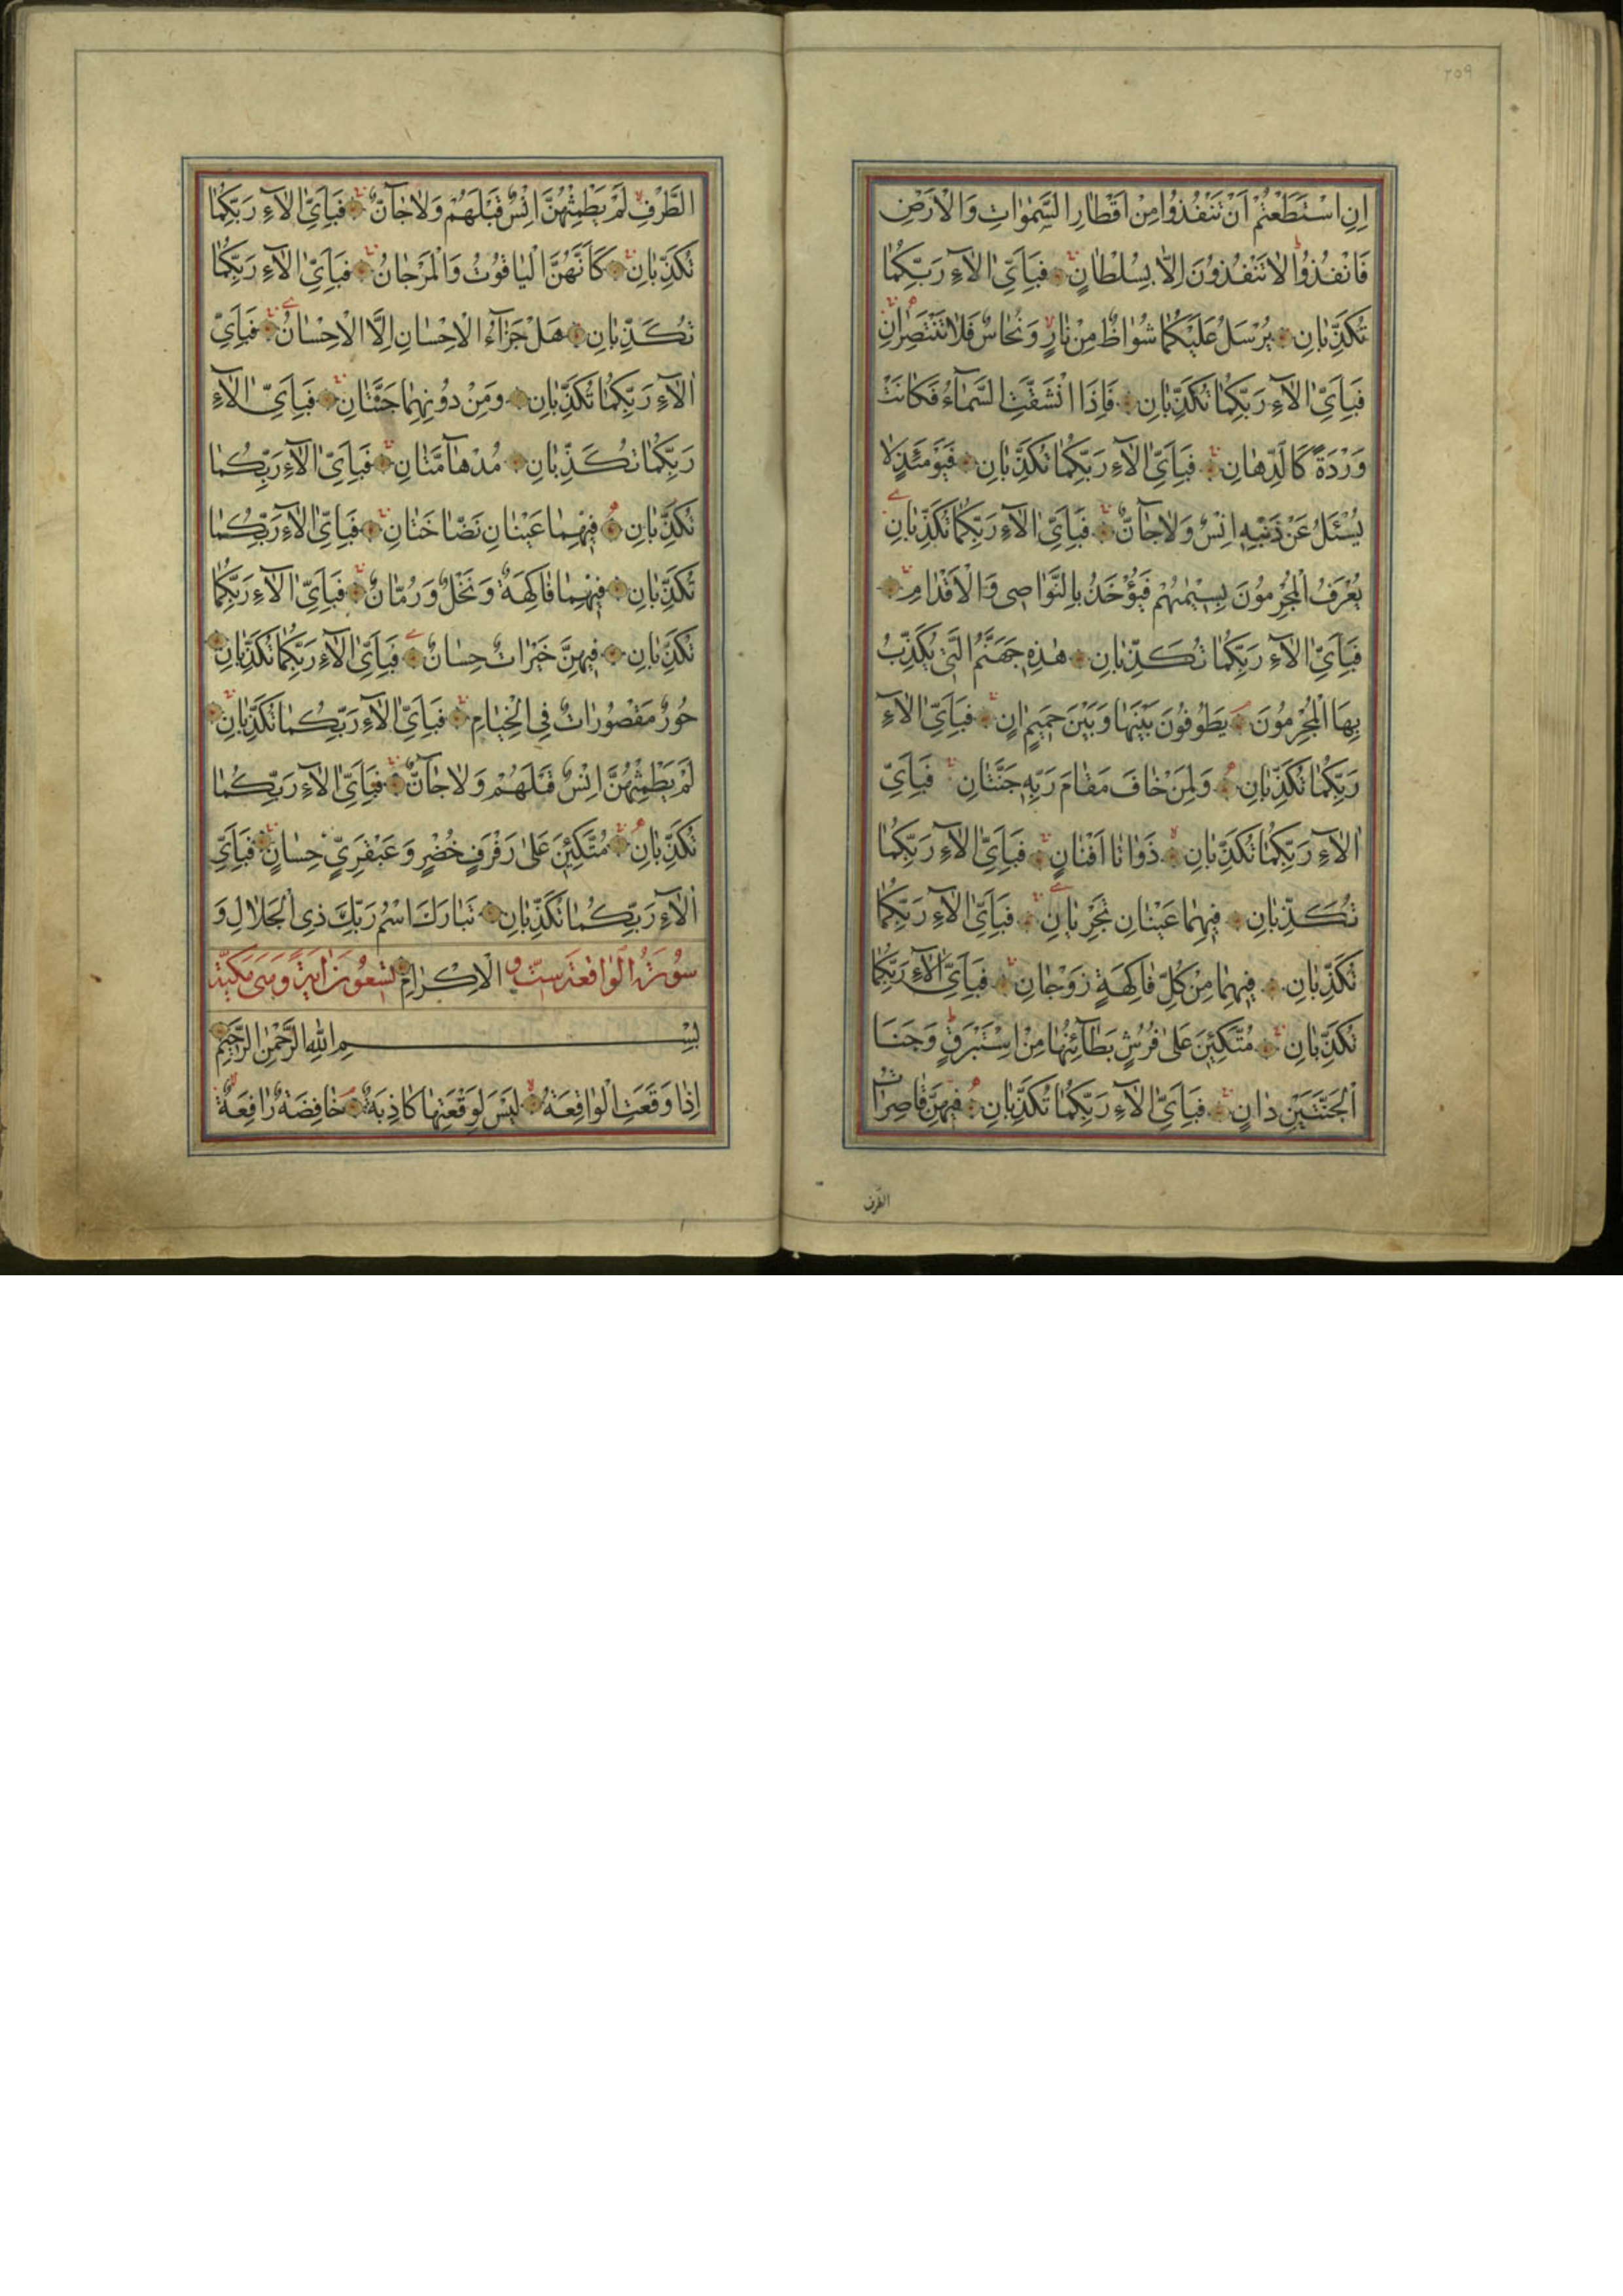 ٢٥٩
اِنِ اسْتَطَعْتُمْ اَنْ تَنْفُذُوا مِنْ اَقْطَارِ السَّمٰوَاتِ وَالْاَرْضِ
فَانْفُذُوا لَا تَنْفُذُونَ اِلَّا بِسُلْطَانٍ فَبِاَيِّ اٰلَآءِ رَبِّكُمَا
تُكَذِّبَانِ يُرْسَلُ عَلَيْكُمَا شُوَاظٌ مِنْ نَارٍ وَنُحَاسٌ فَلَا تَنْتَصِرَانِ
فَبِاَيِّ اٰلَآءِ رَبِّكُمَا تُكَذِّبَانِ فَاِذَا انْشَقَّتِ السَّمَآءُ فَكَانَتْ
وَرْدَةً كَالدِّهَانِ فَبِاَيِّ اٰلَآءِ رَبِّكُمَا تُكَذِّبَانِ فَيَوْمَئِذٍ لَا
يُسْئَلُ عَنْ ذَنْبِهِ اِنْسٌ وَلَا جَآنٌّ فَبِاَيِّ اٰلَآءِ رَبِّكُمَا تُكَذِّبَانِ
يُعْرَفُ الْمُجْرِمُونَ بِسِيمٰيهُمْ فَيُؤْخَذُ بِالنَّوَاصِي وَالْاَقْدَامِ
فَبِاَيِّ اٰلَآءِ رَبِّكُمَا تُكَذِّبَانِ هٰذِهِ جَهَنَّمُ الَّتِي يُكَذِّبُ
بِهَا الْمُجْرِمُونَ يَطُوفُونَ بَيْنَهَا وَبَيْنَ حَمِيمٍ اٰنٍ فَبِاَيِّ اٰلَآءِ
رَبِّكُمَا تُكَذِّبَانِ وَلِمَنْ خَافَ مَقَامَ رَبِّهِ جَنَّتَانِ فَبِاَيِّ
اٰلَآءِ رَبِّكُمَا تُكَذِّبَانِ ذَوَاتَا اَفْنَانٍ فَبِاَيِّ اٰلَآءِ رَبِّكُمَا
تُكَذِّبَانِ فِيهِمَا عَيْنَانِ تَجْرِيَانِ فَبِاَيِّ اٰلَآءِ رَبِّكُمَا
تُكَذِّبَانِ فِيهِمَا مِنْ كُلِّ فَاكِهَةٍ زَوْجَانِ فَبِاَيِّ اٰلَآءِ رَبِّكُمَا
تُكَذِّبَانِ مُتَّكِئِينَ عَلٰى فُرُشٍ بَطَآئِنُهَا مِنْ اِسْتَبْرَقٍ وَجَنَا
الْجَنَّتَيْنِ دَانٍ فَبِاَيِّ اٰلَآءِ رَبِّكُمَا تُكَذِّبَانِ فِيهِنَّ قَاصِرَاتُ
الطرف
الطَّرْفِ لَمْ يَطْمِثْهُنَّ اِنْسٌ قَبْلَهُمْ وَلَا جَآنٌّ فَبِاَيِّ اٰلَآءِ رَبِّكُمَا
تُكَذِّبَانِ كَاَنَّهُنَّ الْيَاقُوتُ وَالْمَرْجَانُ فَبِاَيِّ اٰلَآءِ رَبِّكُمَا
تُكَذِّبَانِ هَلْ جَزَآءُ الْاِحْسَانِ اِلَّا الْاِحْسَانُ فَبِاَيِّ
اٰلَآءِ رَبِّكُمَا تُكَذِّبَانِ وَمِنْ دُونِهِمَا جَنَّتَانِ فَبِاَيِّ اٰلَآءِ
رَبِّكُمَا تُكَذِّبَانِ مُدْهَآمَّتَانِ فَبِاَيِّ اٰلَآءِ رَبِّكُمَا
تُكَذِّبَانِ فِيهِمَا عَيْنَانِ نَضَّاخَتَانِ فَبِاَيِّ اٰلَآءِ رَبِّكُمَا
تُكَذِّبَانِ فِيهِمَا فَاكِهَةٌ وَنَخْلٌ وَرُمَّانٌ فَبِاَيِّ اٰلَآءِ رَبِّكُمَا
تُكَذِّبَانِ فِيهِنَّ خَيْرَاتٌ حِسَانٌ فَبِاَيِّ اٰلَآءِ رَبِّكُمَا تُكَذِّبَانِ
حُورٌ مَقْصُورَاتٌ فِي الْخِيَامِ فَبِاَيِّ اٰلَآءِ رَبِّكُمَا تُكَذِّبَانِ
لَمْ يَطْمِثْهُنَّ اِنْسٌ قَبْلَهُمْ وَلَا جَآنٌّ فَبِاَيِّ اٰلَآءِ رَبِّكُمَا
تُكَذِّبَانِ مُتَّكِئِينَ عَلٰى رَفْرَفٍ خُضْرٍ وَعَبْقَرِيٍّ حِسَانٍ فَبِاَيِّ
اٰلَآءِ رَبِّكُمَا تُكَذِّبَانِ تَبَارَكَ اسْمُ رَبِّكَ ذِي الْجَلَالِ وَ
سُورَةُ الْوَاقِعَة سِتّ و الْاِكْرَامِ تسعون اية وهى مكية
بِسْمِ اللّٰهِ الرَّحْمٰنِ الرَّحِيمِ
اِذَا وَقَعَتِ الْوَاقِعَةُ لَيْسَ لِوَقْعَتِهَا كَاذِبَةٌ خَافِضَةٌ رَافِعَةٌ